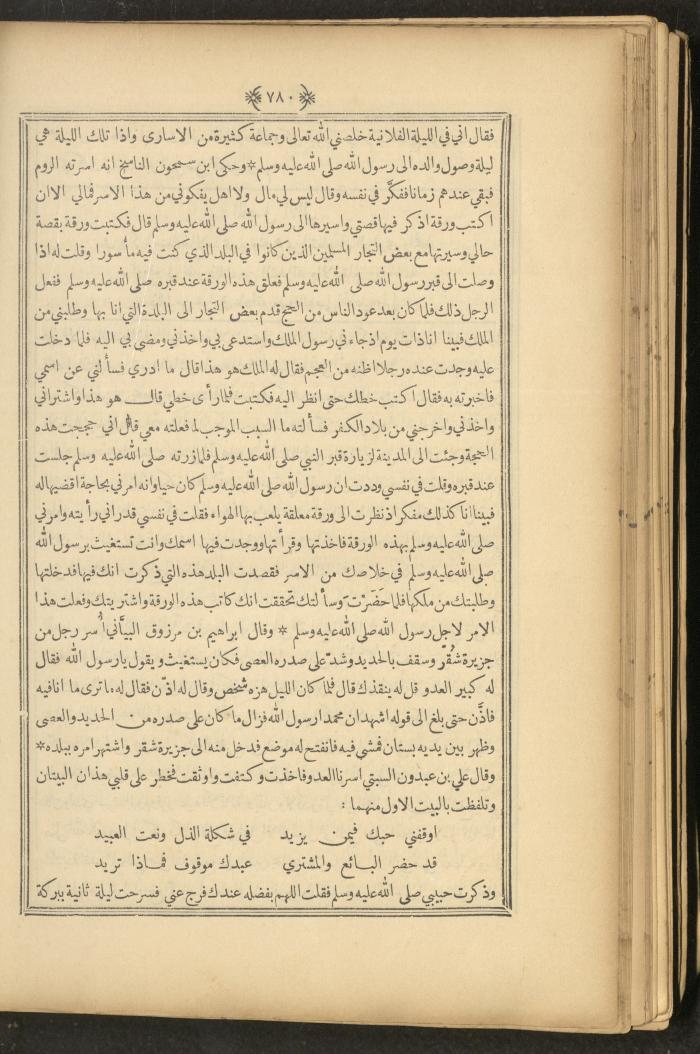 ﴿٧٨٠﴾
فقال اني في الليلة الفلانية خلصني الله تعالى وجماعة كثيرة من الاسارى واذا تلك الليلة هي
ليلة وصول والده الى رسول الله صلى الله عليه وسلم * وحكى ابن سمحون الناسخ انه اسرته الروم
فبقي عندهم زمانا ففكَّر في نفسه وقال ليس لي مال ولا اهل يفكوني من هذا الاسر فمالي الا ان
اكتب ورقة اذكر فيها قصتي واسيرها الى رسول الله صلى الله عليه وسلم قال فكتبت ورقة بقصة
حالي وسيرتها مع بعض التجار المسلمين الذين كانوا في البلد الذي كنت فيه مأسورا وقلت له اذا
وصلت الى قبر رسول الله صلى الله عليه وسلم فعلق هذه الورقة عند قبره صلى الله عليه وسلم ففعل
الرجل ذلك فلما كان بعد عود الناس من الحج قدم بعض التجار الى البلدة التي انا بها وطلبني من
الملك فبينا انا ذات يوم اذ جاءني رسول الملك واستدعى بي واخذني ومضى بي اليه فلما دخلت
عليه وجدت عنده رجلا اظنه من العجم فقال له الملك هو هذا قال ما ادري فسألني عن اسمي
فاخبرته به فقال اكتب خطك حتى انظر اليه فكتبت فلما رأى خطي قال هو هذا واشتراني
واخذني واخرجني من بلاد الكفر فسألته ما السبب الموجب لما فعلته معي قال اني حججت هذه
الحجة وجئت الى المدينة لزيارة قبر النبي صلى الله عليه وسلم فلما زرته صلى الله عليه وسلم جلست
عند قبره وقلت في نفسي وددت ان رسول الله صلى الله عليه وسلم كان حيا وانه امرني بحاجة اقضيها له
فبينا انا كذلك مفكر اذ نظرت الى ورقة معلقة يلعب بها الهواء فقلت في نفسي قد راني رأيته وامرني
صلى الله عليه وسلم بهذه الورقة فاخذتها وقرأتها ووجدت فيها اسمك وانت تستغيث برسول الله
صلى الله عليه وسلم في خلاصك من الاسر فقصدت البلد هذه التي ذكرت انك فيها فدخلتها
وطلبتك من ملكها فلما حَضَرْتَ وسألتك تحققت انك كاتب هذه الورقة واشتريتك وفعلت هذا
الامر لاجل رسول الله صلى الله عليه وسلم * وقال ابراهيم بن مرزوق البيَّاني أُسر رجل من
جزيرة شُقْر وسقف بالحديد وشدّ على صدره العصى فكان يستغيث ويقول يا رسول الله فقال
له كبير العدو قل له ينقذك قال فلما كان الليل هزه شخص وقال له اذّن فقال له ما ترى ما انا فيه
فاذَّن حتى بلغ الى قوله اشهد ان محمدا رسول الله فزال ما كان على صدره من الحديد والعصى
وظهر بين يديه بستان فمشى فيه فانفتح له موضع فدخل منه الى جزيرة شقر واشتهر امره ببلده *
وقال علي بن عبدون السبتي اسرنا العدو فاخذت وكتفت واوثقت فخطر على قلبي هذان البيتان
وتلفظت بالبيت الاول منهما :
اوقفني حبك فيمن يزيد في شكلة الذل ونعت العبيد
قد حضر البائع والمشتري عبدك موقوف فماذا تريد
وذكرت حبيبي صلى الله عليه وسلم فقلت اللهم بفضله عندك فرج عني فسرحت ليلة ثانية ببركة